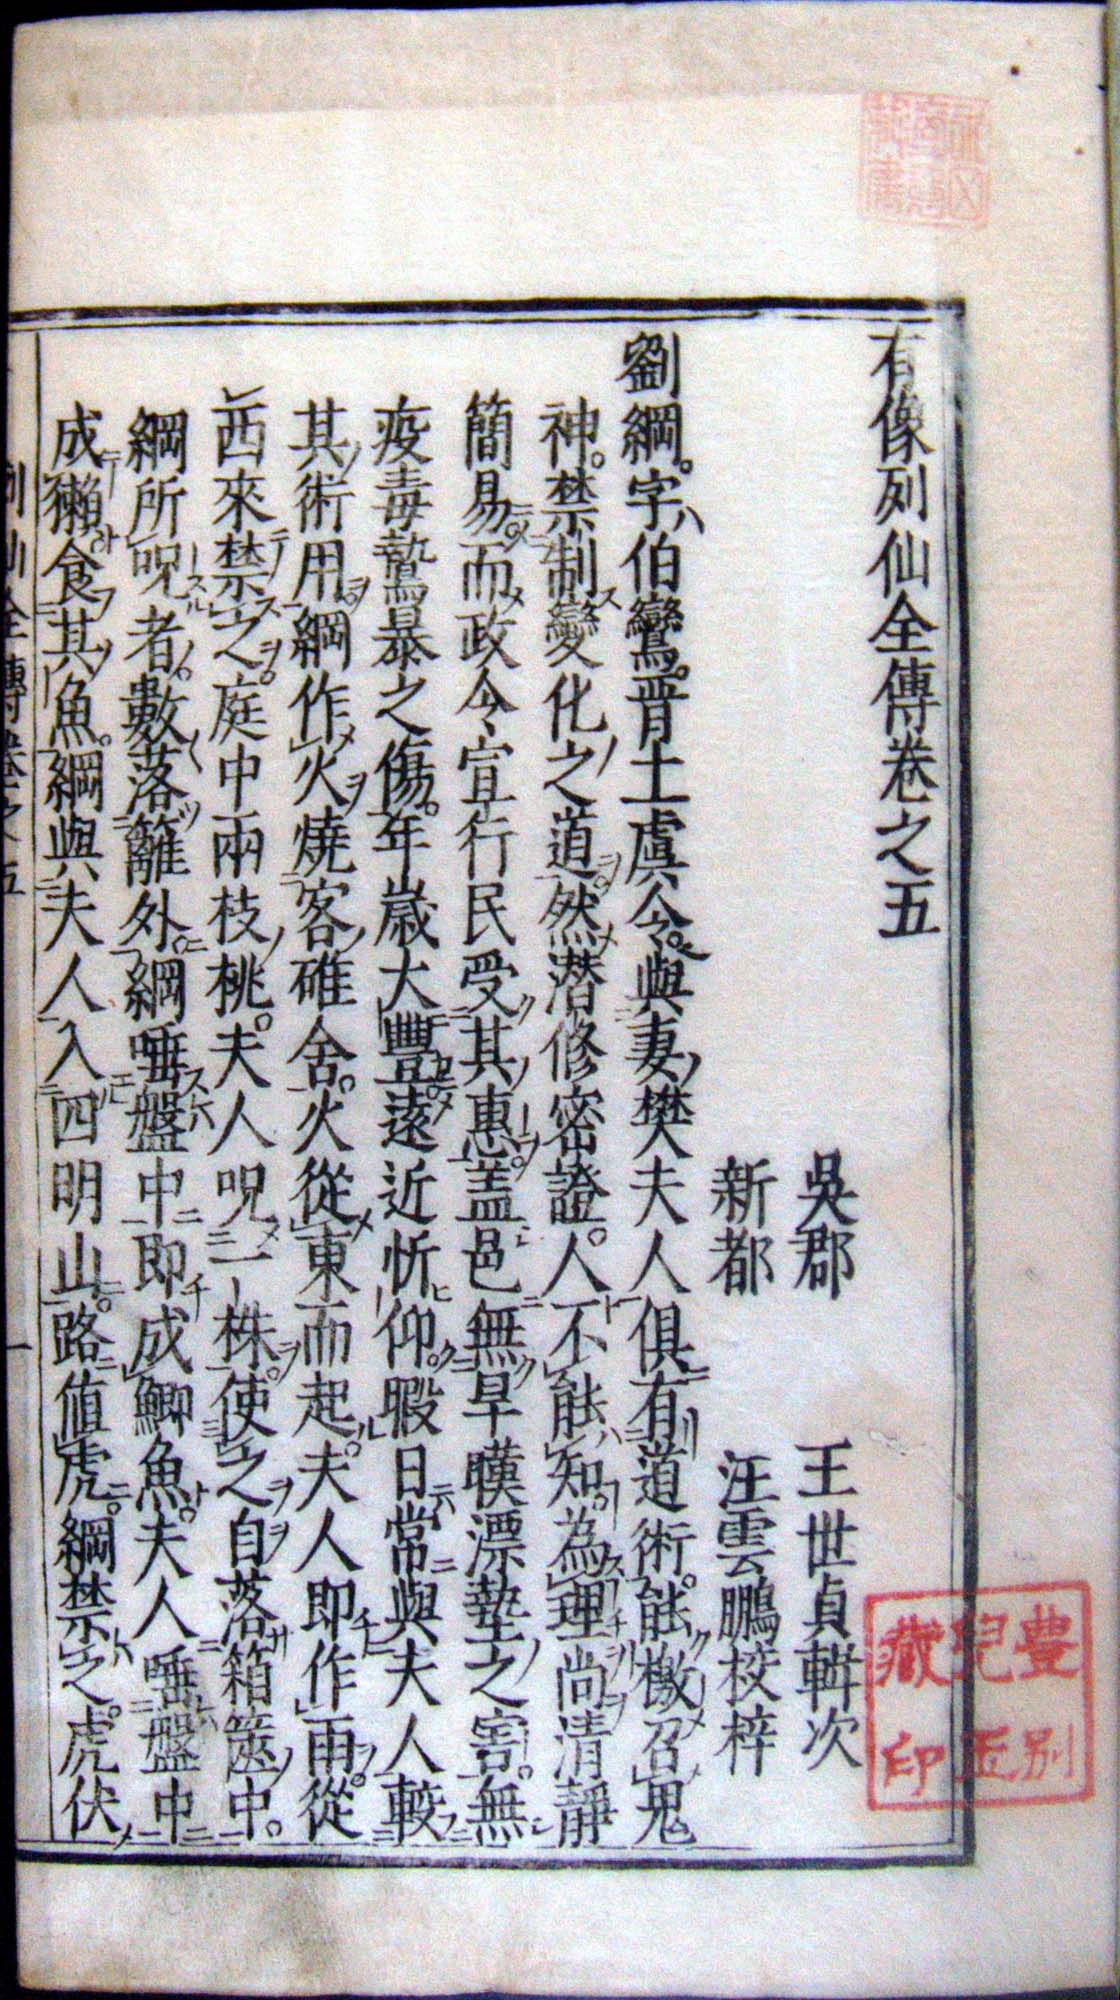 有像列仙全傳卷之五
吳郡 王世貞輯次
新都 汪雲鵬校梓
劉綱。字伯鸞。晋上虞令。與妻樊夫人俱有道術。能檄召鬼
神。禁制變化之道。然潜修密證。人不能知。為理尚清靜
簡易。而政令宣行民受其惠。盖邑無旱暵漂墊之害。無
疫毒鷙暴之傷。年歲大豐遠近忻仰。暇日常與夫人較
其術用。綱作火燒客碓舍。火從東而起。夫人即作雨。從
西來禁之。庭中兩枝桃。夫人呪一株。使之自落箱篋中。
綱所呪者。數落籬外。綱唾盤中即成鯽魚。夫人唾盤中
成獺。食其魚。綱與夫人入四明山。路值虎。綱禁之。虎伏
列仙全傳卷之五 一
豊 別 藏印